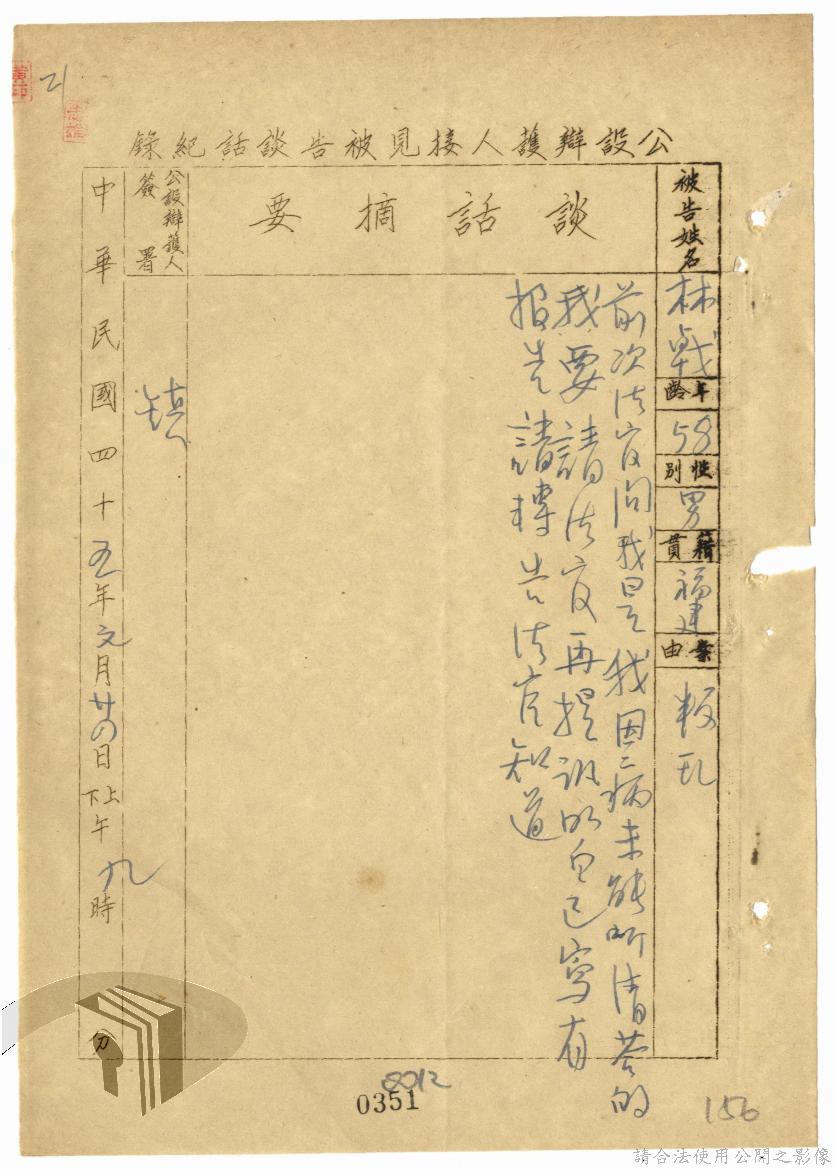 公設辯護人接見被告談話紀錄
被告姓名
林戟
年齡
58
性別
男
籍貫
福建
案由
叛乱
談話摘要
前次法官问我是我因病未能听清荅的
我要請法官再提訊明白已寫有
报告請轉告法官知道
公設辯護人
簽署
中華民國四十五年元月廿四日上下午九時 分
0351
156
請合法使用公開之影像